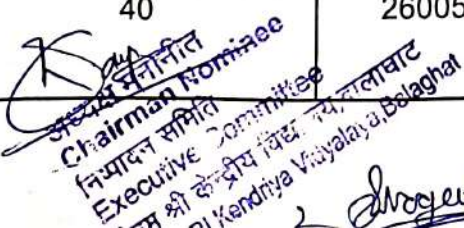 40
26005
अध्यक्ष मनोनीत
Chairman Nominee
निष्पादन समिति
Executive Committee
श्री केन्द्रीय विद्यालय, बालाघाट
Kendriya Vidyalaya, Balaghat